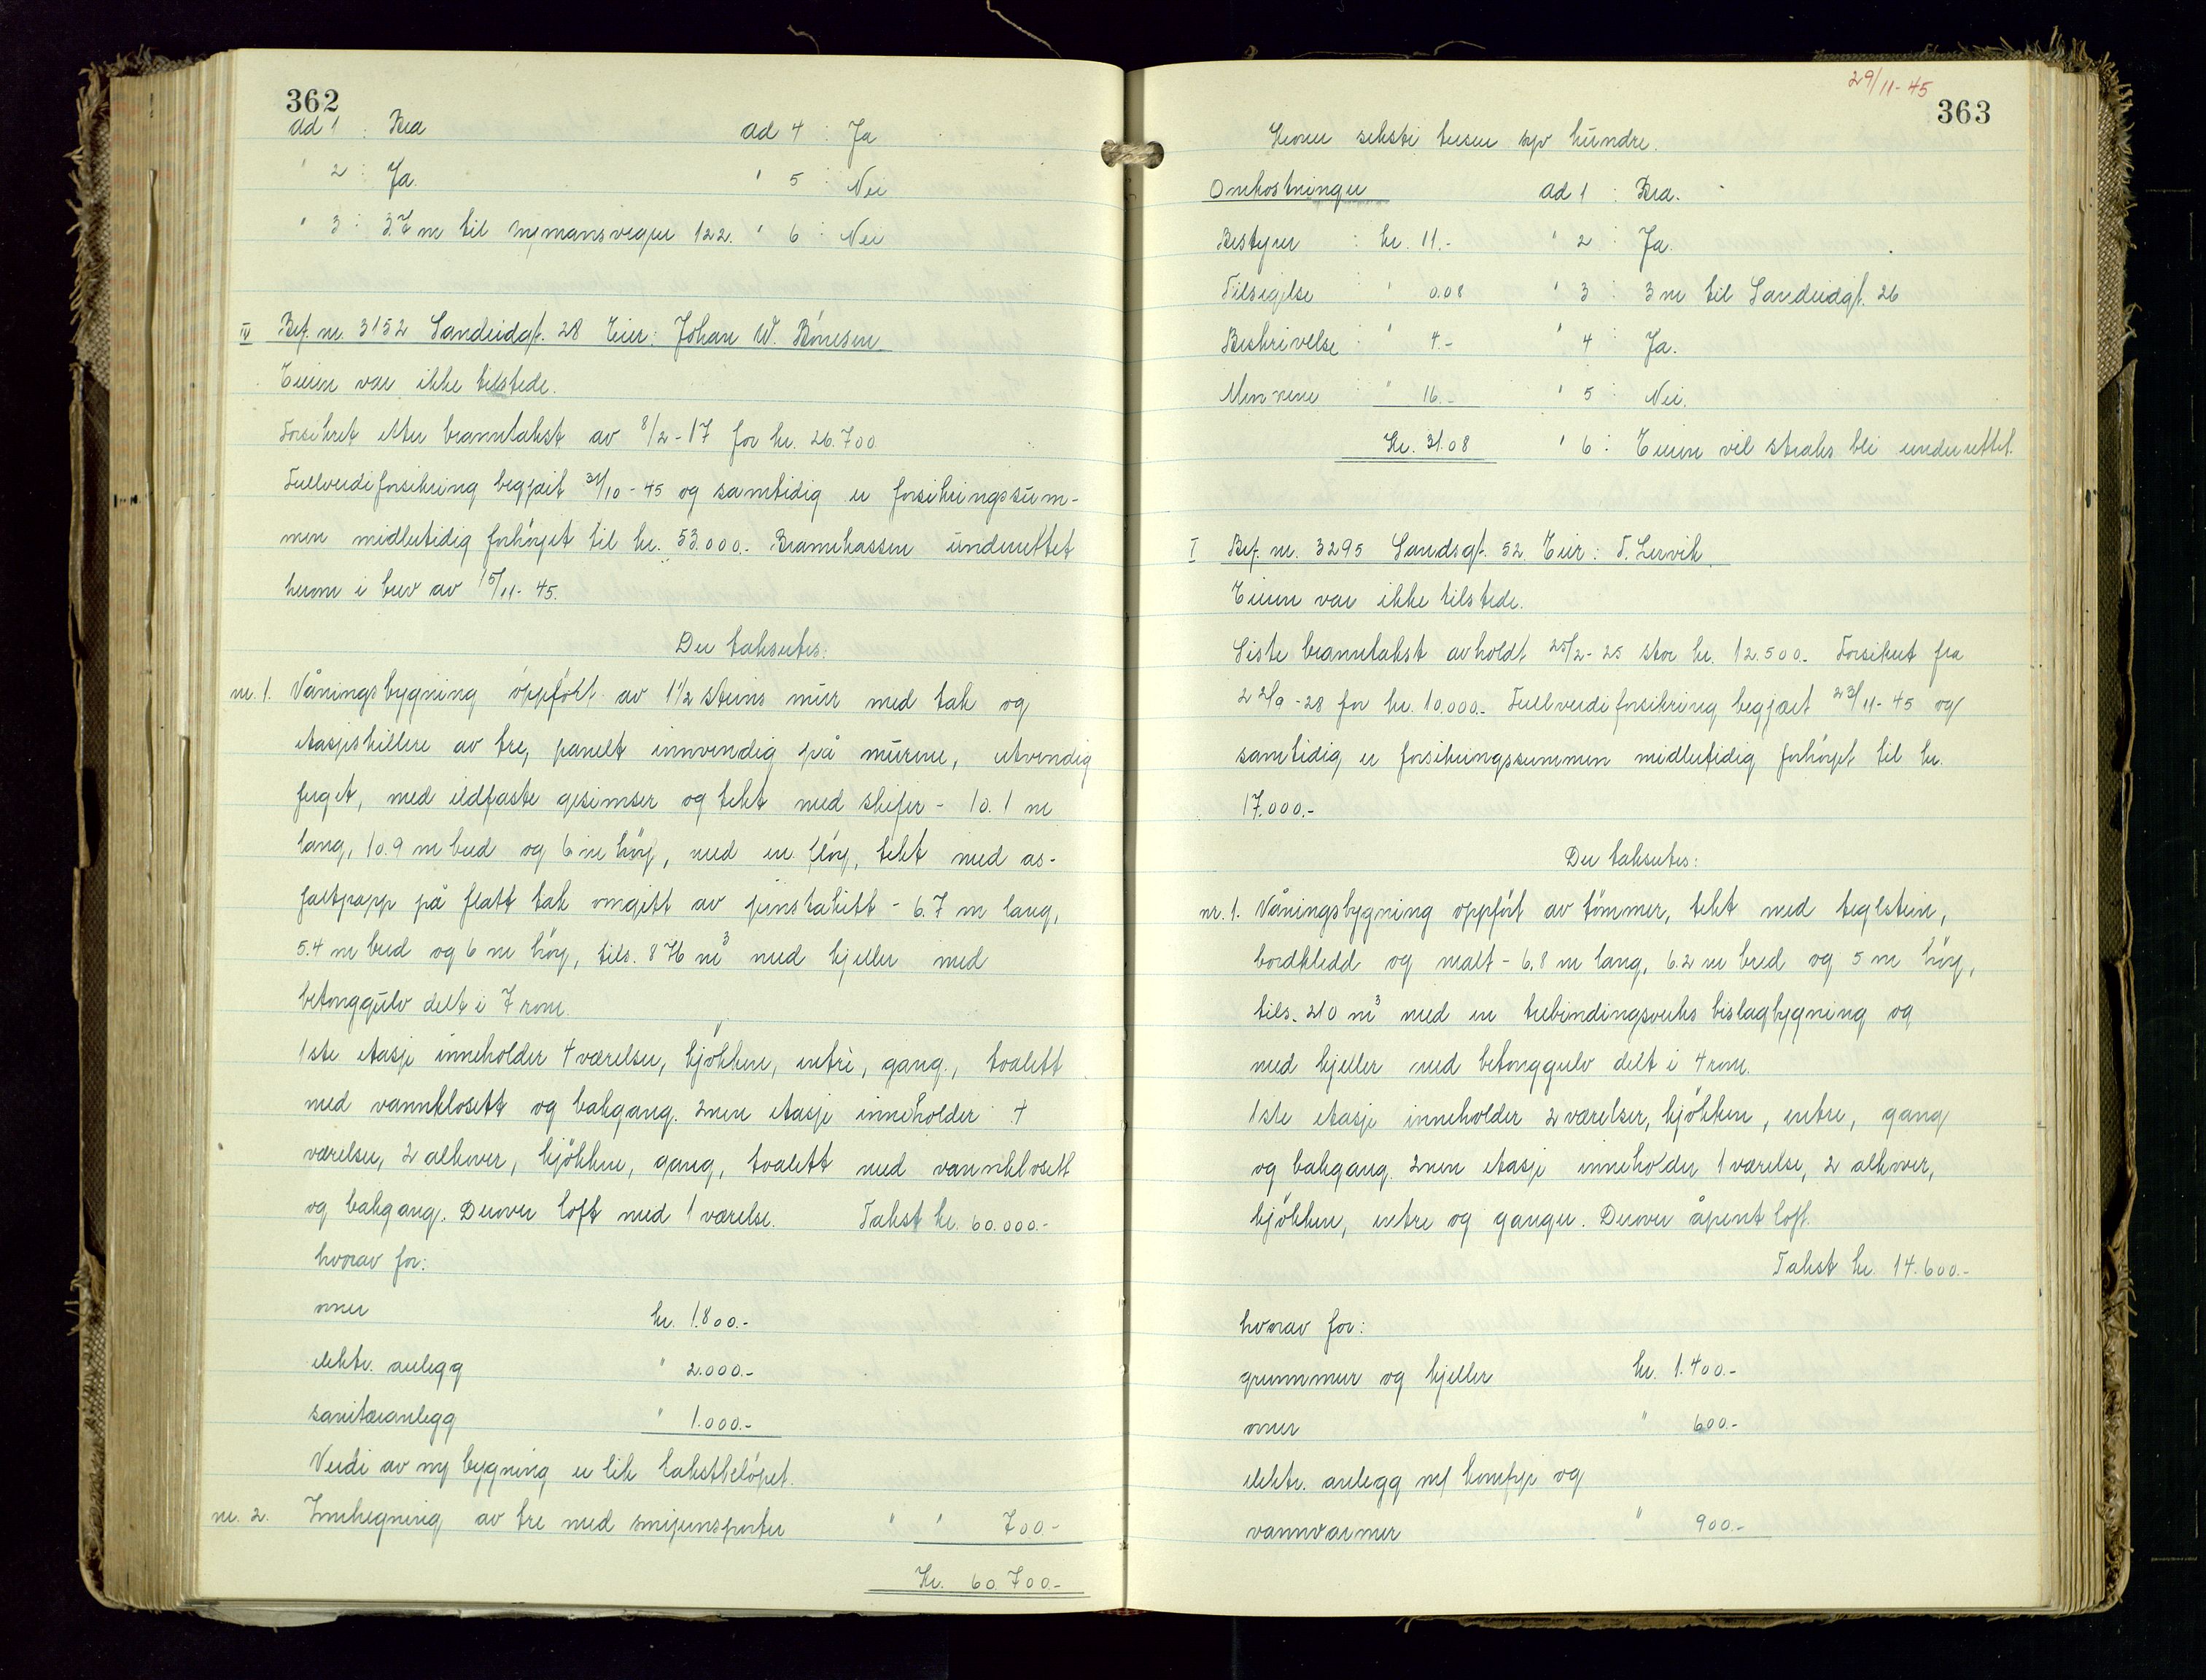 362
ad 1 : Bra ad 4 : Ja
" 2 : Ja. " 5 : Nei
" 3 : 3.7 m til Nymansveien 122. " 6 : Nei
IV Bef. nr. 3152 Sandeidgt. 28 Eier: Johan W. Bönesen
Eieren var ikke tilstede.
Forsikret etter branntakst av 8/2-17 for kr. 26.700
Fullverdiforsikring begjært 31/10-45 og samtidig er forsikringssum-
men midlertidig forhöyet til kr. 53.000.- Brannkassen underrettet
herom i brev av 15/11-45.
Der takseres:
nr. 1. Våningsbygning oppfört av 1 1/2 steins mur med tak og
etasjeskillere av tre, panelt innvendig på murene, utvendig
fuget, med ildfaste gesimser og tekt med skifer - 10.1 m
lang, 10.9 m bred og 6 m höy, med en flöy, tekt med as-
faltpapp på flatt tak omgitt av jernstakitt - 6.7 m lang,
5.4 m bred og 6 m höy, tils. 876 m³ med kjeller med
betonggulv delt i 7 rom.
1ste etasje inneholder 4 værelser, kjökken, entrè, gang, toalett
med vannklosett og bakgang. 2nen etasje inneholder 4
værelser, 2 alkover, kjökken, gang, toalett med vannklosett
og bakgang. Derover loft med 1 værelse. Takst kr. 60.000.-
hvorav for:
ovner kr. 1.800.-
elektr. anlegg " 2.000.-
sanitæranlegg " 1.000.-
Verdi av ny bygning er lik takstbelöpet.
nr. 2. Innhegning av tre med smijernsporter " " 700.-
Kr. 60.700.-
29/11-45
363
Kroner seksti tusen syv hundre.
Omkostninger ad 1 : Bra.
Bestyrer : kr. 11.- " 2 : Ja.
Tilsigelse " 0.08 " 3 : 3 m til Sandeidgt. 26
Beskrivelse : " 4.- " 4 : Ja.
Mennene : " 16.- " 5 : Nei.
Kr. 31.08 " 6 : Eieren vil straks bli underrettet.
I Bef. nr. 3295 Sandsgt. 52. Eier: T. Lervik.
Eieren var ikke tilstede.
Siste branntakst avholdt 25/2-25 stor kr. 12.500.- Forsikret fra
22/9-28 for kr. 10.000.- Fullverdiforsikring begjært 23/11-45 og
samtidig er forsikringssummen midlertidig forhöyet til kr.
17.000.-
Der takseres:
nr. 1. Våningsbygning oppfört av tömmer, tekt med teglstein,
bordkledd og malt - 6.8 m lang, 6.2 m bred og 5 m höy,
tils. 210 m³ med en trebindingsverks bislagbygning og
med kjeller med betonggulv delt i 4 rom.
1ste etasje inneholder 2 værelser, kjökken, entre, gang
og bakgang. 2nen etasje inneholder 1 værelse, 2 alkover,
kjökken, entre og ganger. Derover åpent loft.
Takst kr. 14.600.-
hvorav for:
grunnmur og kjeller kr. 1.400.-
ovner " 600.-
elektr. anlegg m/ komfyr og
vannvarmer " 900.-